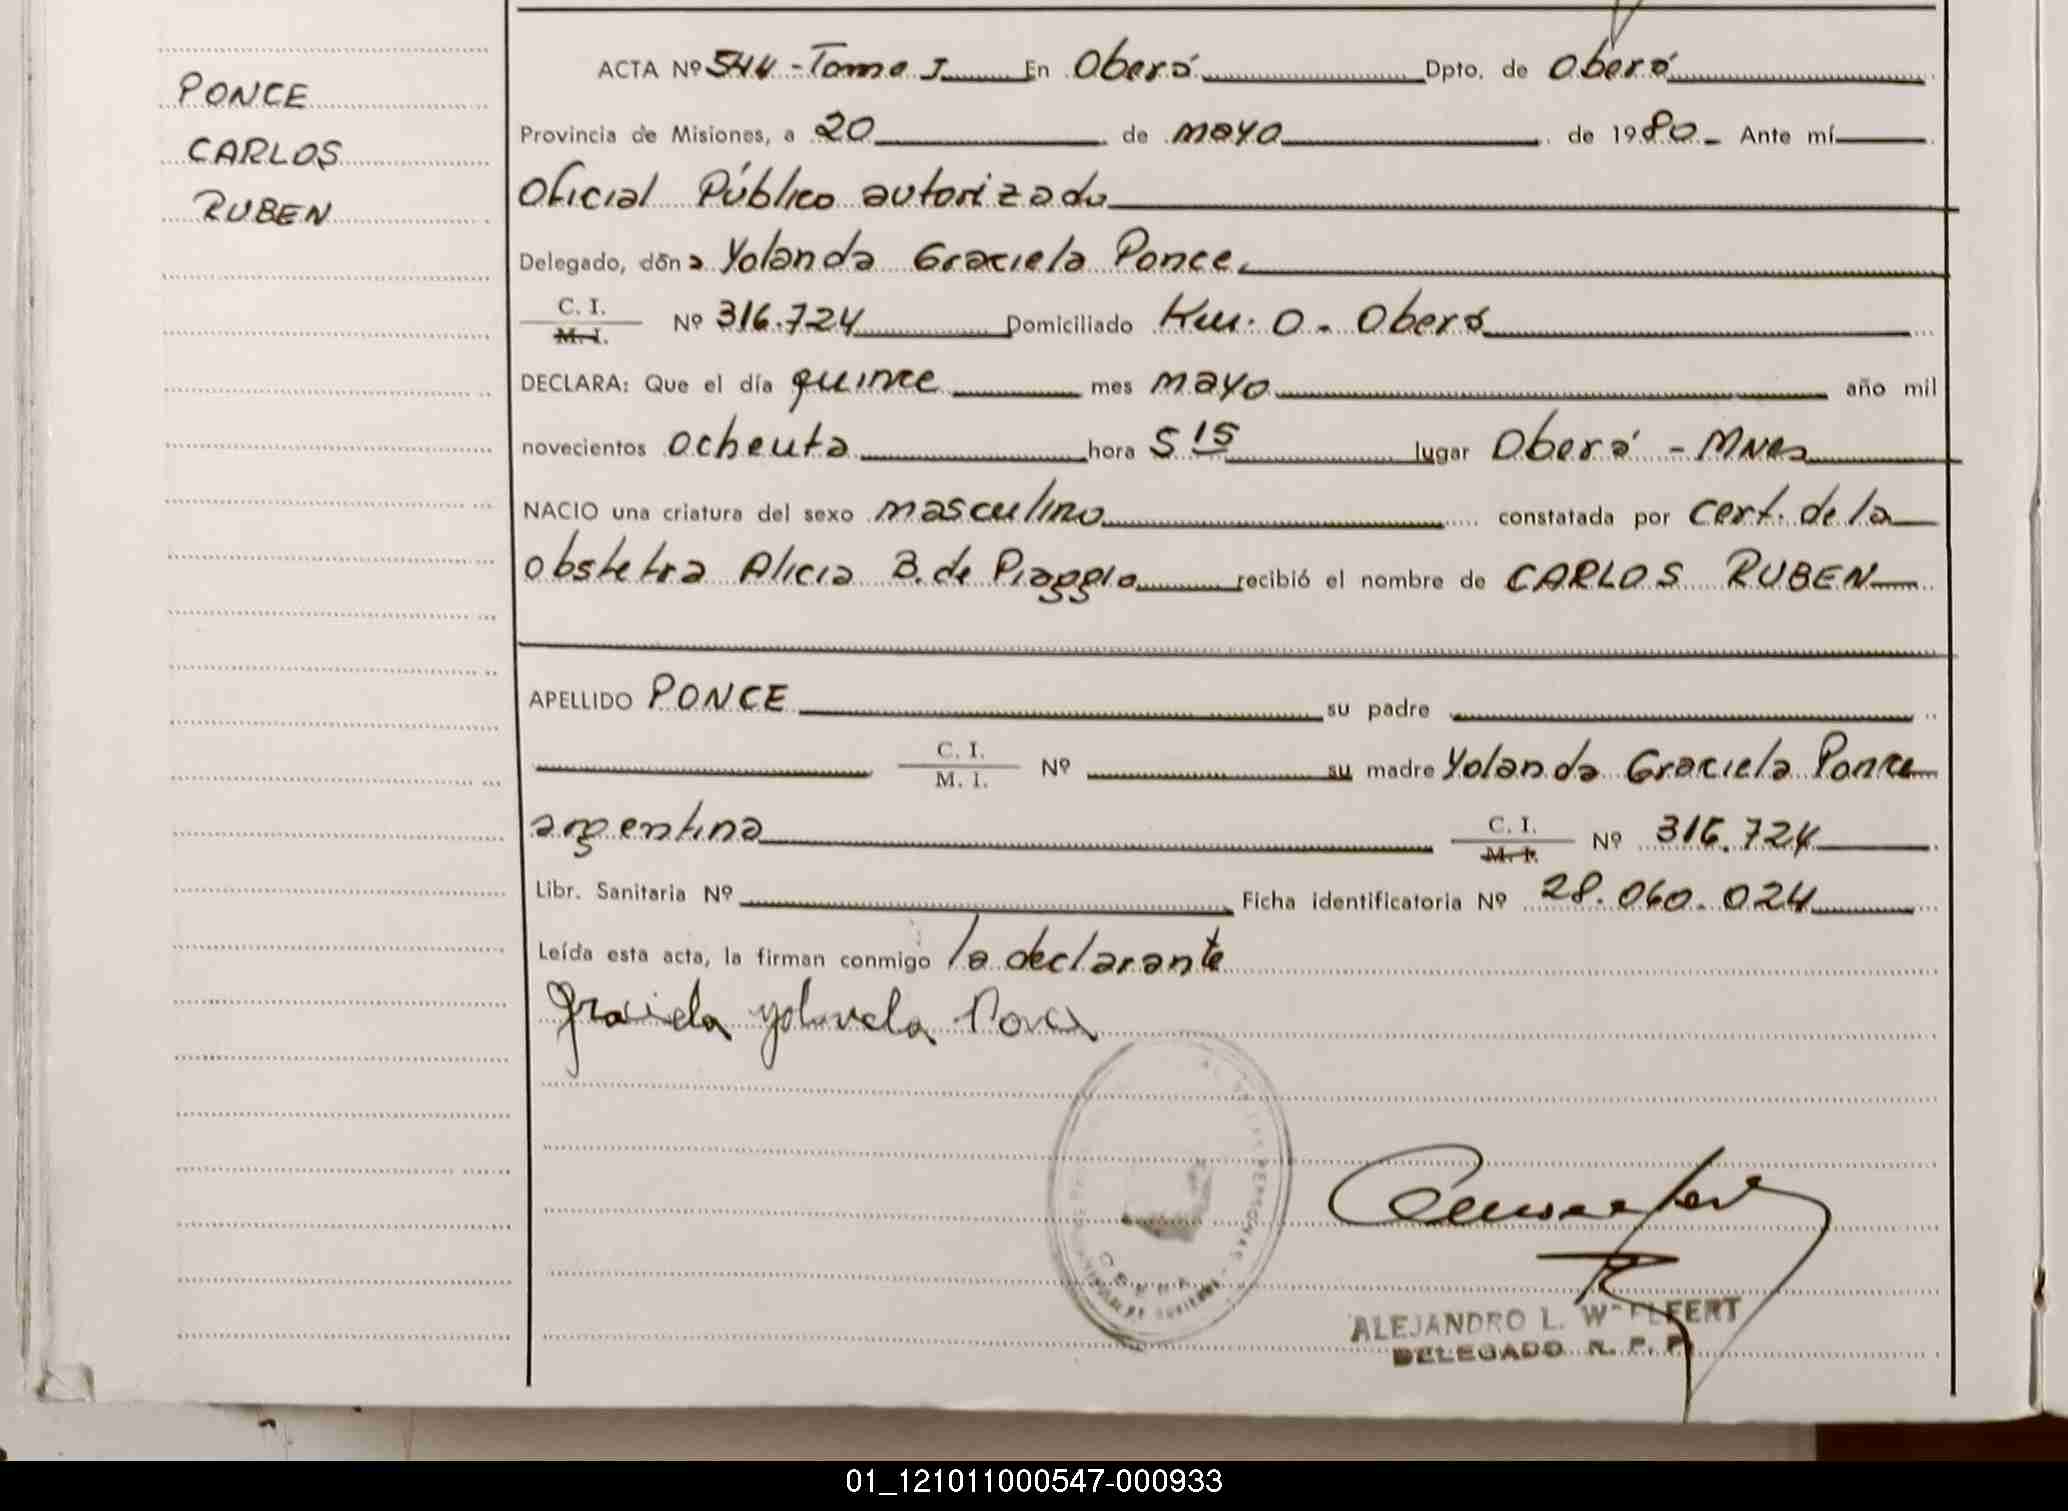 PONCE
CARLOS
RUBEN
ACTA Nº 544 - Tomo I En Oberá Dpto. de Oberá
Provincia de Misiones, a 20 de mayo de 1980 - Ante mí
Oficial Público autorizado
Delegado, dóna Yolanda Graciela Ponce
C. I.
M. I. Nº 316.724 Domiciliado Km. 0 - Oberá
DECLARA: Que el día quince mes mayo año mil
novecientos ochenta hora 5 15 lugar Oberá - Mnes
NACIO una criatura del sexo masculino constatada por cert. de la
obstetra Alicia B. de Piaggio recibió el nombre de CARLOS RUBEN
APELLIDO PONCE su padre
C. I.
M. I. Nº su madre Yolanda Graciela Ponce
argentina C. I.
M. I. Nº 316.724
Libr. Sanitaria Nº Ficha identificatoria Nº 28.060.024
Leída esta acta, la firman conmigo la declarante
Graciela Yolanda Ponce
ALEJANDRO L.
DELEGADO R. P. P.
01_121011000547-000933